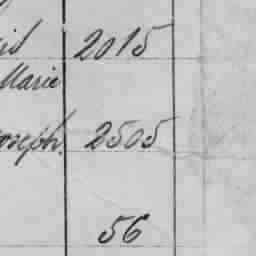 2015
Marie
Joseph. 2505
56